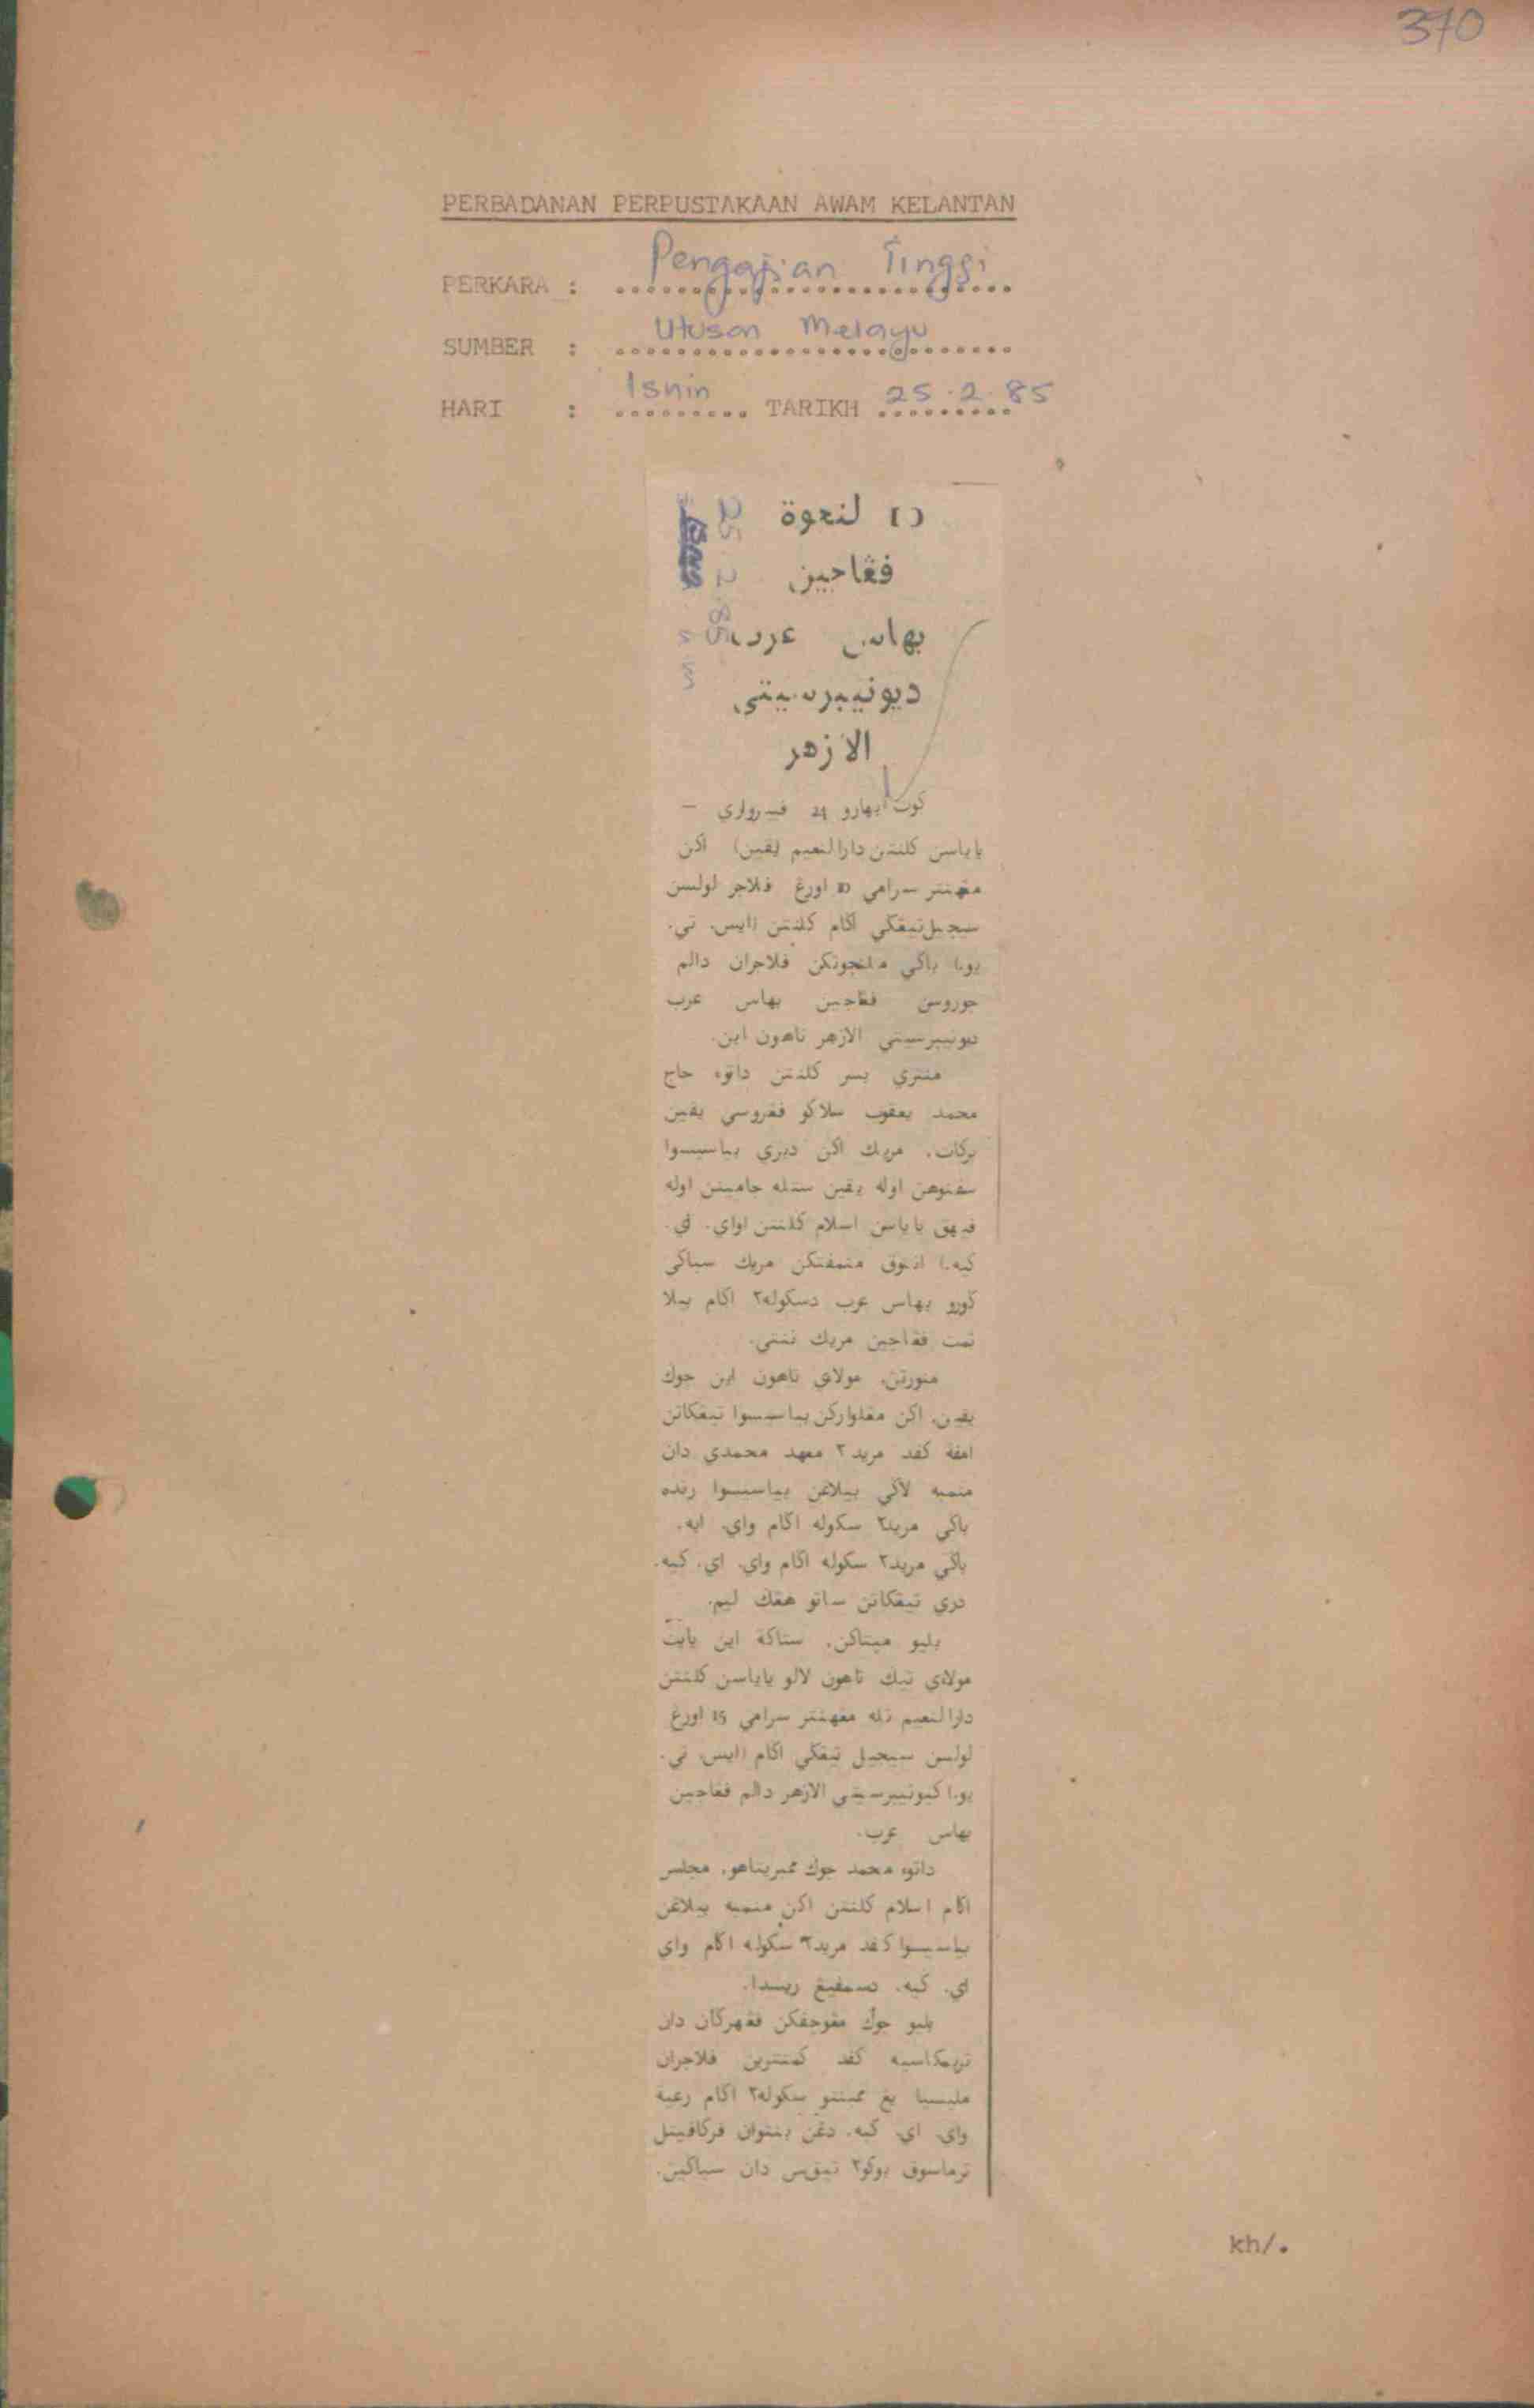 370
PERBADANAN PERPUSTAKAAN AWAM KELANTAN
PERKARA : Pengajian Tinggi
SUMBER : Utusan Melayu
HARI : Isnin TARIKH 25.2.85
لنجوة
ڤڠاجين
بهاس عرب
ديونيبرسيتي
الازهر
كوت بهارو 24 فيبرواري –
ياياسن كلنتن دارالنعيم (يقين) اکن
مڠهنتر سرامي 10 اورڠ ڤلاجر لولسن
سيجيل تيڠݢي اݢام کلنتن (ايس. تي.
يو.) باݢي ملنجوتکن ڤلاجران دالم
جوروسن ڤڠاجين بهاس عرب
ديونيبرسيتي الازهر تاهون اين.
منتري بسر کلنتن داتوء حاج
محمد يعقوب سلاکو ڤڠروسي يقين
برکات، مريک اکن دبري بياسيسوا
سڤنوهن اوله يقين ستله جامينن اوله
ڤيهق ياياسن اسلام کلنتن (واي. اي.
کيه.) انتوق منمڤتکن مريک سباݢي
ݢورو بهاس عرب دسکوله٢ اݢام بيلا
تمت ڤڠاجين مريک ننتي.
منورتڽ، مولاي تاهون اين جوݢ
يقين، اکن مڠلوارکن بياسيسوا تيڠکاتن
امڤت کڤد مريد٢ معهد محمدي دان
منمبه لاݢي بيلاڠن بياسيسوا رنده
باݢي مريد٢ سکوله اݢام واي. ايه.
باݢي مريد٢ سکوله اݢام واي. اي. کيه.
دري تيڠکاتن ساتو هڠݢ ليم.
بليو مڽتاکن، ستاکة اين يايت
مولاي تيݢ تاهون لالو ياياسن کلنتن
دارالنعيم تله مڠهنتر سرامي 15 اورڠ
لولسن سيجيل تيڠݢي اݢام (ايس. تي.
يو.) کيونيبرسيتي الازهر دالم ڤڠاجين
بهاس عرب.
داتوء محمد جوݢ ممبريتاهو، مجلس
اݢام اسلام کلنتن اکن منمبه بيلاڠن
بياسيسوا کڤد مريد٢ سکوله اݢام واي
اي. کيه. دسمڤيڠ
بليو جوݢ مڠوچڤکن ڤڠهرݢأن دان
تريمکاسيه کڤد کمنترين ڤلاجران
مليسيا يڠ ممبنتو سکوله٢ اݢام رعية
واي. اي. کيه. دڠن بنتوان ڤرکاڤيتل
ترماسوق بوکو٢ تيکس دان سباݢيڽ.
kh/.